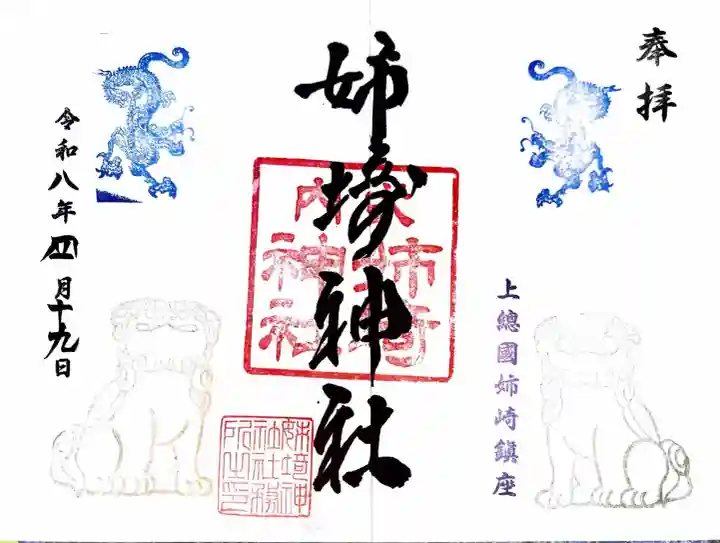 奉拝
上總國姉崎鎮座
姉埼神社
姉埼神社社務所之印
令和八年四月十九日